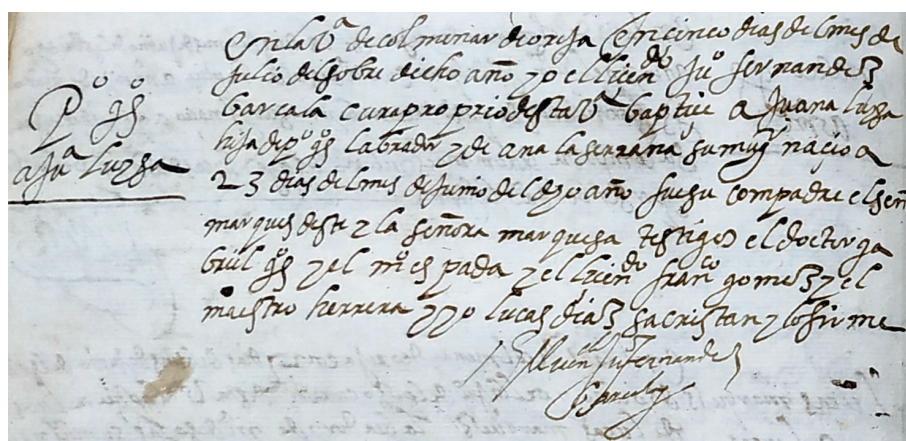 Pº gs
a juª luysa
En la Vª de colmenar de oreja En cinco dias del mes de
Julio del sobre dicho año yo el licendo Juº fernandez
barcala cura proprio desta Vª baptice a Juana luysa
hija de pº gs labrador y de ana la serrana su muger nacio a
23 dias del mes de junio del dho año fue su compadre el señ
marques deste y la señora marquesa testigos el doctor ga
briel gs y el mº espada y el licendo franco gomez y el
maestro herrera y yo lucas diaz sacristan y lo firme
el licendo Ju fernandez
barcala